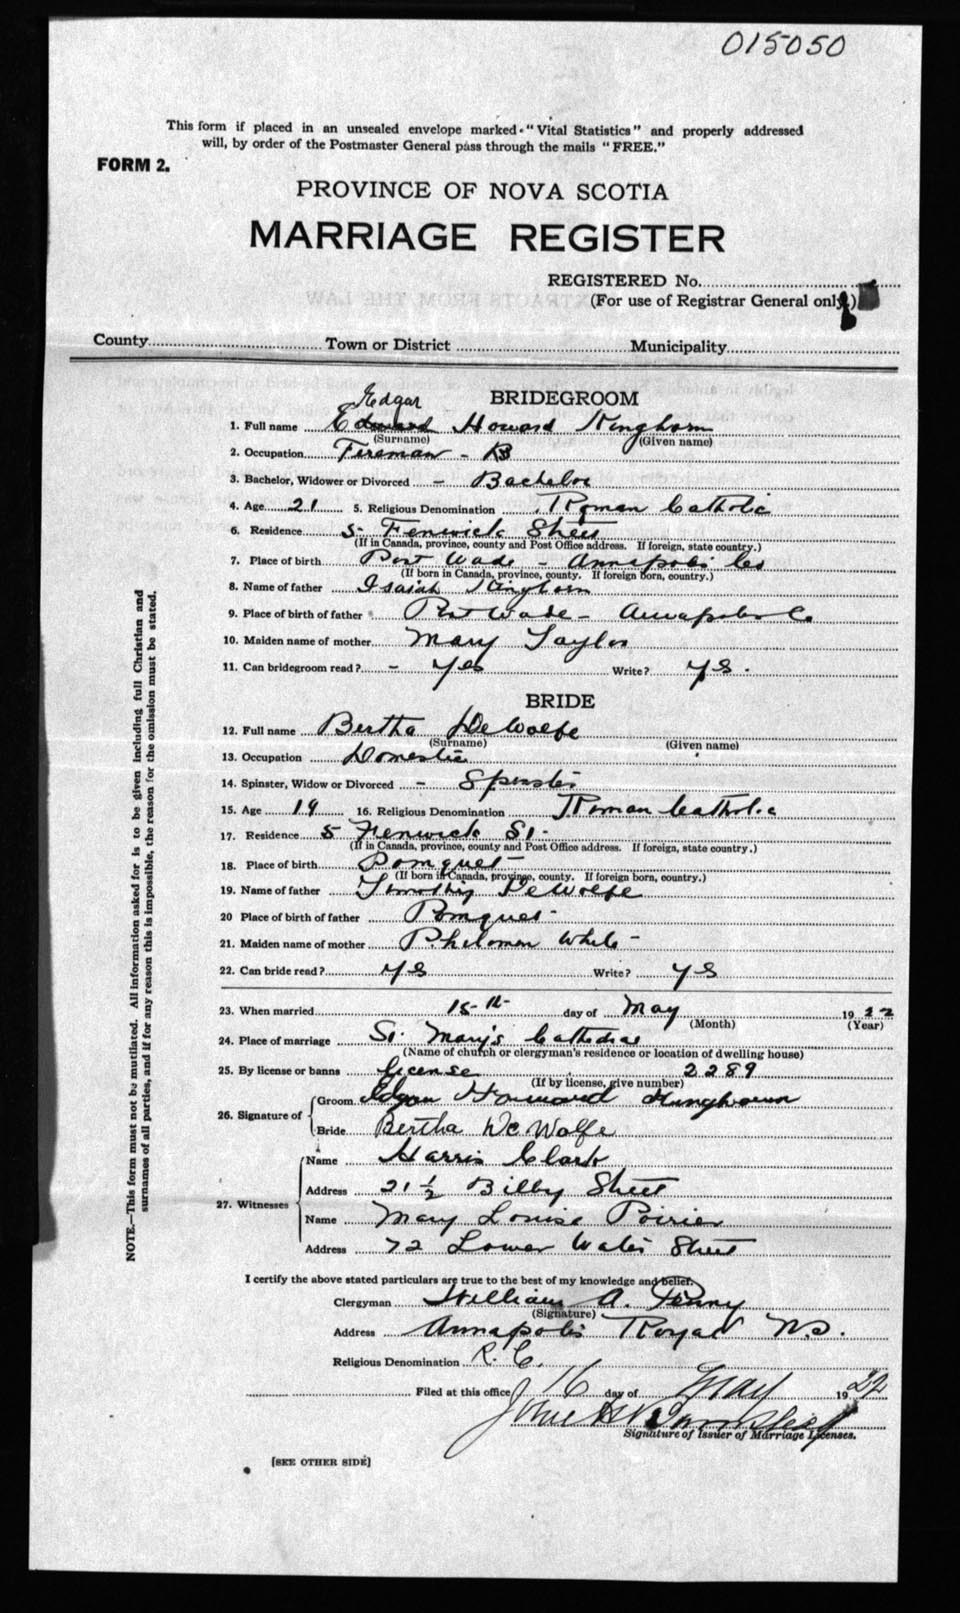 015050
This form if placed in an unsealed envelope marked "Vital Statistics" and properly addressed
will, by order of the Postmaster General pass through the mails "FREE."
FORM 2.
PROVINCE OF NOVA SCOTIA
MARRIAGE REGISTER
REGISTERED No.
(For use of Registrar General only.)
County Town or District Municipality
BRIDEGROOM
Edgar
1. Full name Edward Howard Kinghorn
(Surname) (Given name)
2. Occupation Fireman -
3. Bachelor, Widower or Divorced - Bachelor
4. Age 21 5. Religious Denomination Roman Catholic
6. Residence 5 Fenwick Street
(If in Canada, province, county and Post Office address. If foreign, state country.)
7. Place of birth Port Wade - Annapolis Co
(If born in Canada, province, county. If foreign born, country.)
8. Name of father Isaiah Kinghorn
9. Place of birth of father Port Wade - Annapolis Co
10. Maiden name of mother Mary Taylor
11. Can bridegroom read? - Yes Write? Yes.
BRIDE
12. Full name Bertha DeWolfe
(Surname) (Given name)
13. Occupation Domestic
14. Spinster, Widow or Divorced - Spinster
15. Age 19 16. Religious Denomination Roman Catholic
17. Residence 5 Fenwick St.
(If in Canada, province, county and Post Office address. If foreign, state country.)
18. Place of birth Pomquet -
(If born in Canada, province, county. If foreign born, country.)
19. Name of father Timothy DeWolfe
20 Place of birth of father Pomquet -
21. Maiden name of mother Philomen White -
22. Can bride read? Yes Write? Yes
23. When married 15th day of May 1922
(Month) (Year)
24. Place of marriage St. Mary's Cathedral
(Name of church or clergyman's residence or location of dwelling house)
25. By license or banns License 2289
(If by license, give number)
26. Signature of Groom Edgar Howard Kinghorn
Bride Bertha De Wolfe
27. Witnesses Name Harris Clark
Address 21 1/2 Bilby Street
Name Mary Louise Poirier
Address 72 Lower Water Street
I certify the above stated particulars are true to the best of my knowledge and belief.
Clergyman William A. Penny
(Signature)
Address Annapolis Royal N.S.
Religious Denomination R. C.
Filed at this office 16 day of May 1922
Signature of Issuer of Marriage Licenses.
[SEE OTHER SIDE]
NOTE.—This form must not be mutilated. All information asked for is to be given including full Christian and
surnames of all parties, and if for any reason this is impossible, the reason for the omission must be stated.